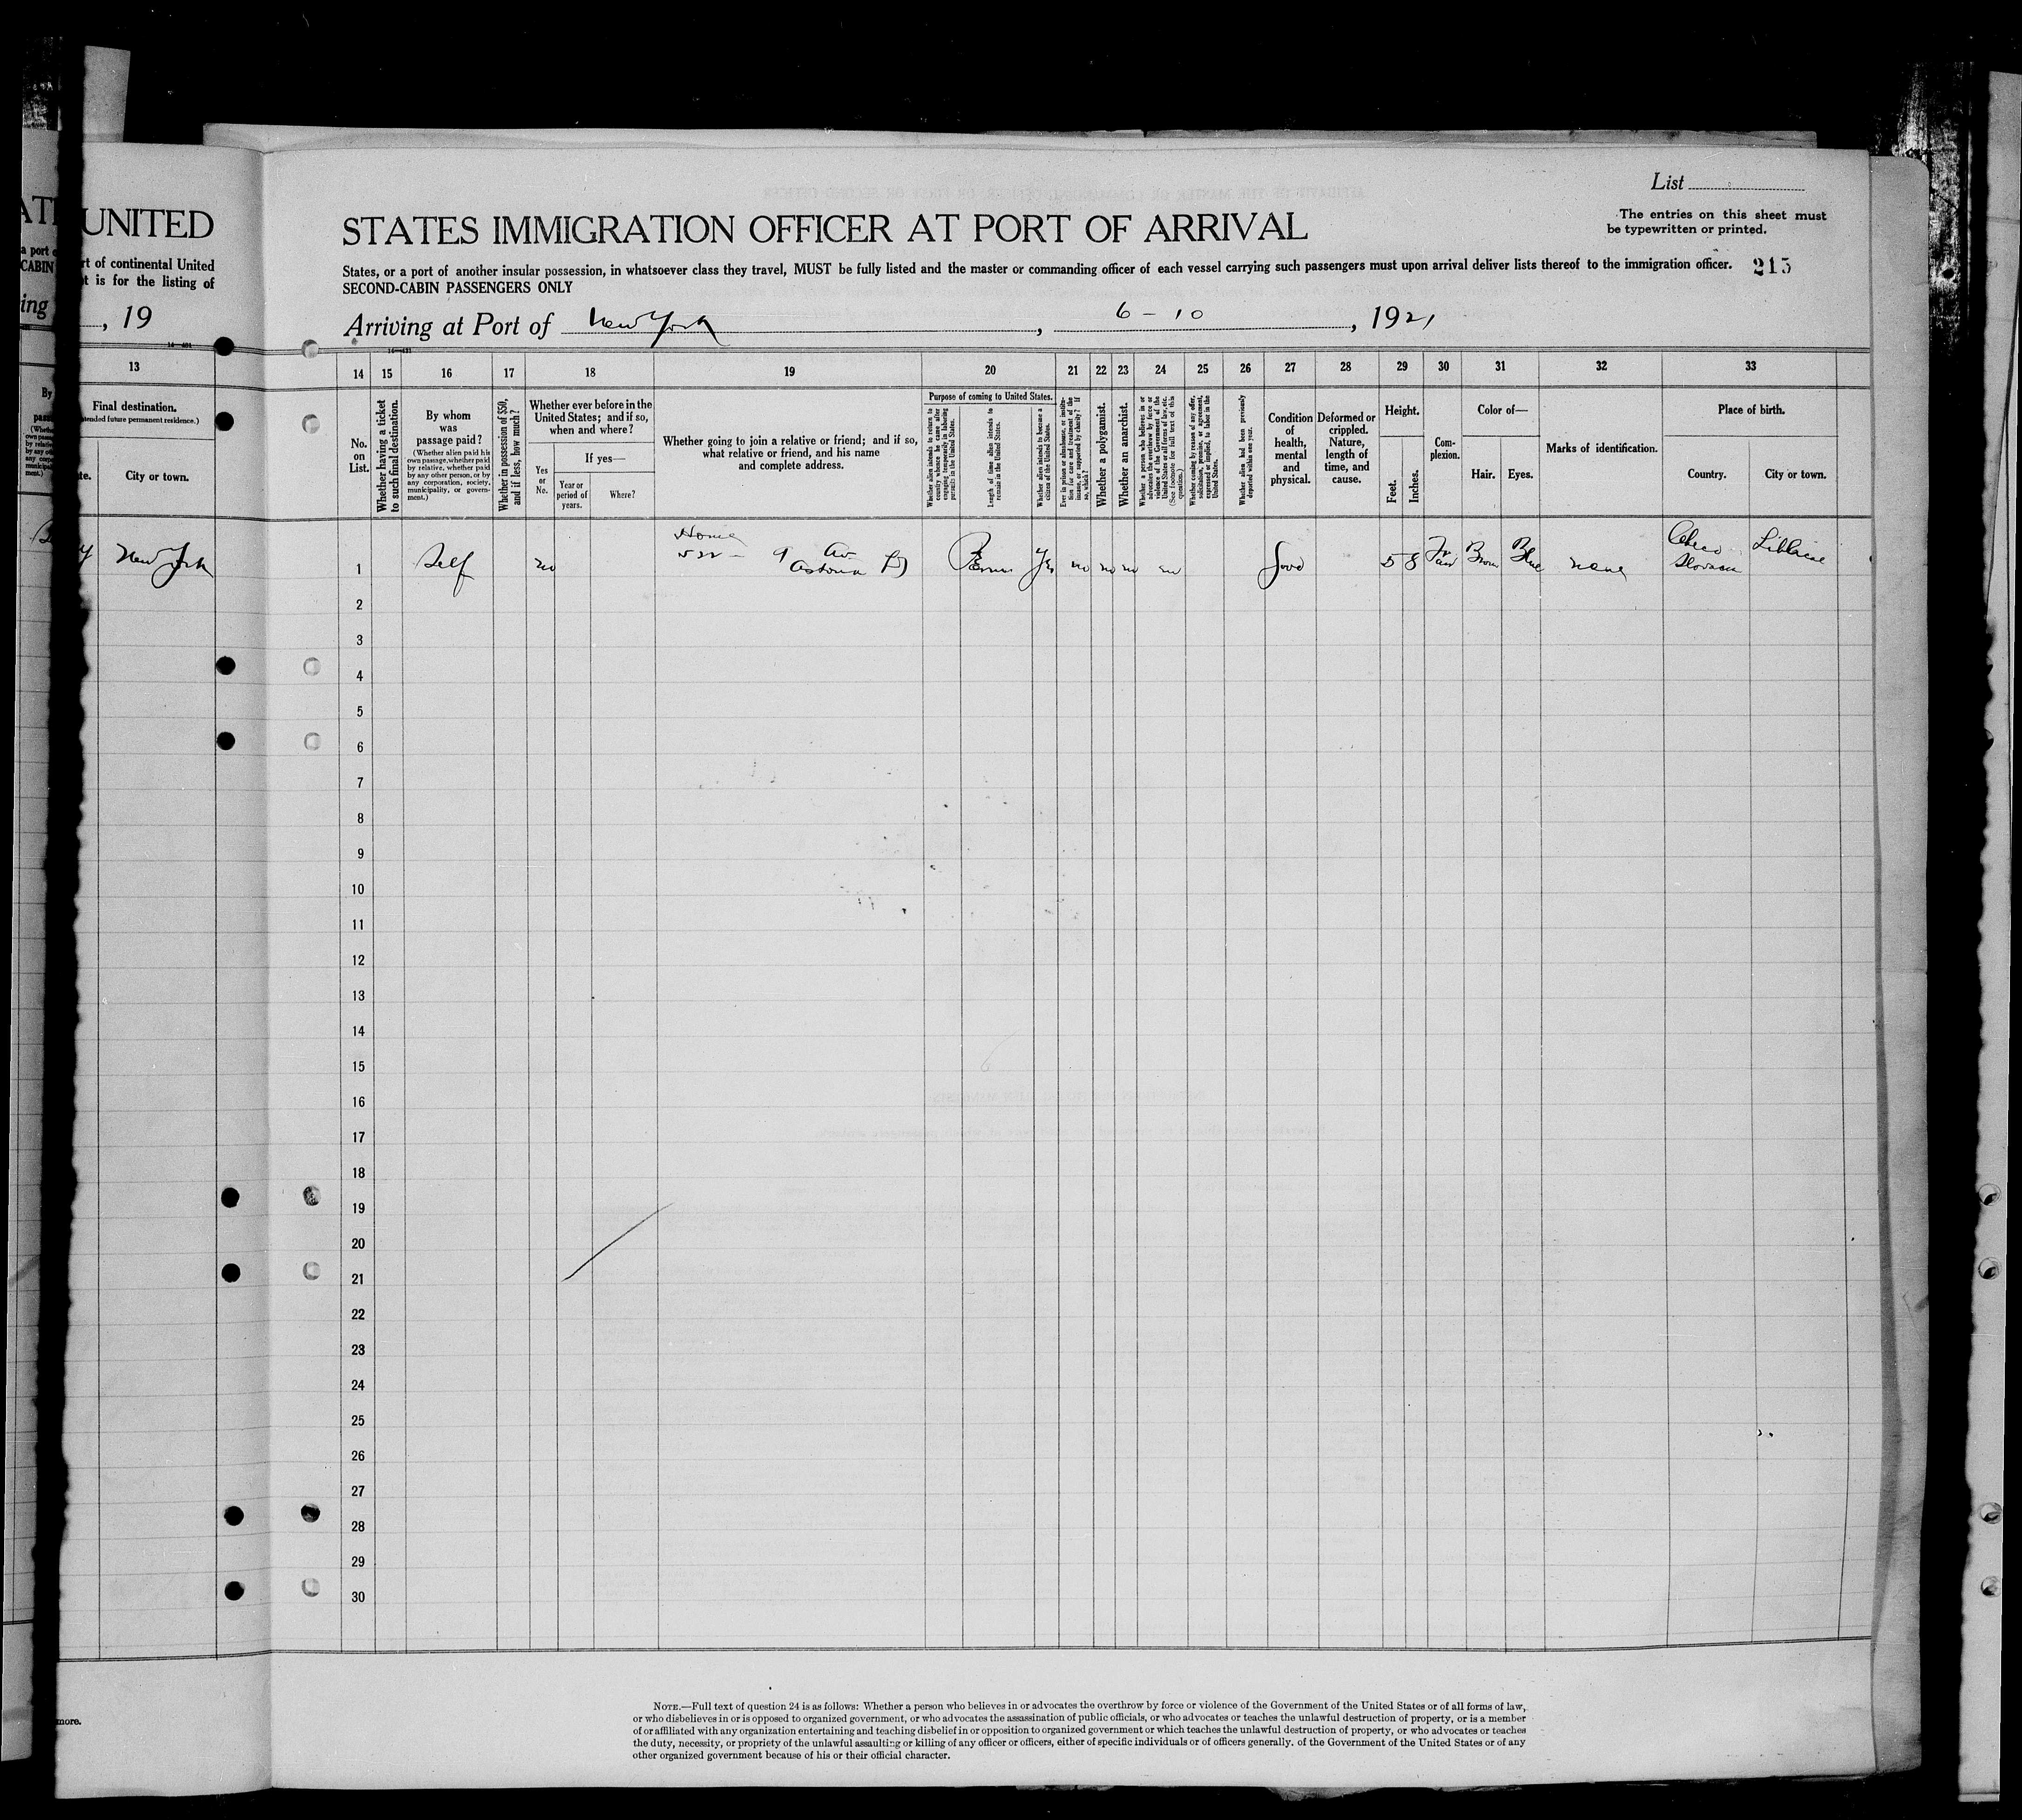 List
The entries on this sheet must
be typewritten or printed.
215
UNITED
STATES IMMIGRATION OFFICER AT PORT OF ARRIVAL
rt of continental United
t is for the listing of
States, or a port of another insular possession, in whatsoever class they travel, MUST be fully listed and the master or commanding officer of each vessel carrying such passengers must upon arrival deliver lists thereof to the immigration officer.
SECOND-CABIN PASSENGERS ONLY
, 19
Arriving at Port of New York, 6-10, 1921
13
14 15 16 17 18 19 20 21 22 23 24 25 26 27 28 29 30 31 32 33
Final destination.
City or town.
No. on List.
Whether having a ticket to such final destination.
By whom was passage paid?
(Whether alien paid his own passage, whether paid by relative, whether paid by any other person, or by any corporation, society, municipality, or government.)
Whether in possession of $50, and if less, how much?
Whether ever before in the United States; and if so, when and where?
Yes or No.
If yes—
Year or period of years.
Where?
Whether going to join a relative or friend; and if so, what relative or friend, and his name and complete address.
Purpose of coming to United States.
Whether alien intends to return to country whence he came after engaging temporarily in laboring pursuits in the United States.
Length of time alien intends to remain in the United States.
Whether alien intends to become a citizen of the United States.
Ever in prison or almshouse, or institution for care and treatment of the insane, or supported by charity? If so, which?
Whether a polygamist.
Whether an anarchist.
Whether a person who believes in or advocates the overthrow by force or violence of the Government of the United States or all forms of law, etc. (See footnote for full text of this question.)
Whether coming by reason of any offer, solicitation, promise, or agreement, expressed or implied, to labor in the United States.
Whether alien had been previously deported within one year.
Condition of health, mental and physical.
Deformed or crippled. Nature, length of time, and cause.
Height.
Feet.
Inches.
Complexion.
Color of—
Hair.
Eyes.
Marks of identification.
Place of birth.
Country.
City or town.
New York
1 Self no Home 9 Av Astoria Yes no no no no Good 5 8 Fair Brown Blue none
2
3
4
5
6
7
8
9
10
11
12
13
14
15
16
17
18
19
20
21
22
23
24
25
26
27
28
29
30
more.
NOTE.—Full text of question 24 is as follows: Whether a person who believes in or advocates the overthrow by force or violence of the Government of the United States or of all forms of law,
or who disbelieves in or is opposed to organized government, or who advocates the assassination of public officials, or who advocates or teaches the unlawful destruction of property, or is a member
of or affiliated with any organization entertaining and teaching disbelief in or opposition to organized government or which teaches the unlawful destruction of property, or who advocates or teaches
the duty, necessity, or propriety of the unlawful assaulting or killing of any officer or officers, either of specific individuals or of officers generally. of the Government of the United States or of any
other organized government because of his or their official character.